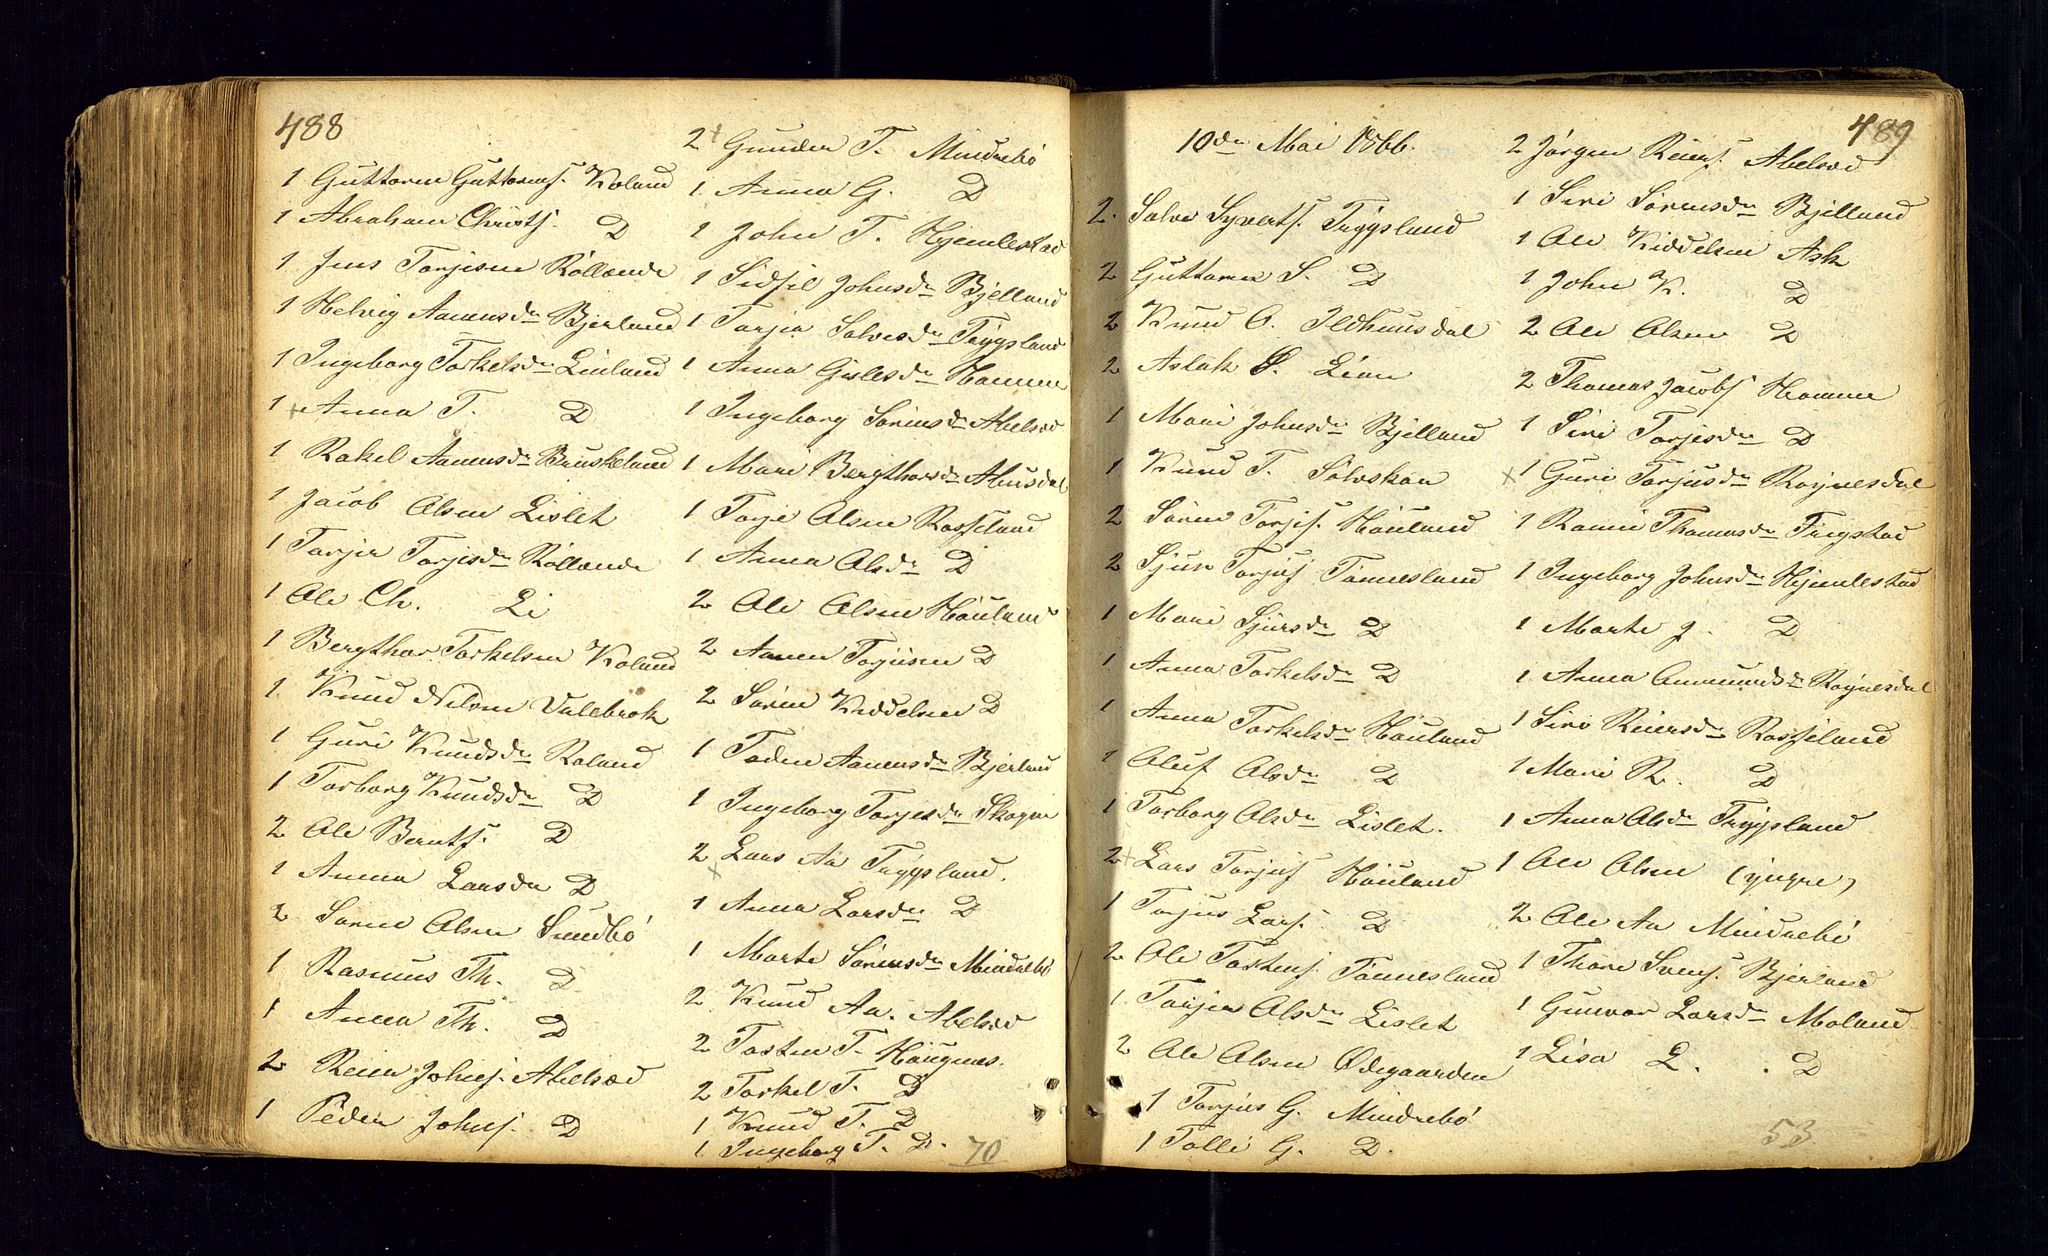 488
1 Guttorm Guttorms. Koland
1 Abraham Christs. D
1 Jens Torjesen Röllende
1 Helvig Aanensdr Bjerland
1 Ingeborg Torkelsdr Linland
1 + Anna T. D
1 Rakel Aanensdr Bruskeland
1 Jacob Olsen Lislet
1 Torjer Torjesdr Röllende
1 Ole Ch. Li
1 Bergthor Torkelsen Koland
1 Knud Nilsen Valebrok
1 Guri Knudsdr Roland
1 Torborg Knudsdr D
2 Ole Bernts. D
1 Anna Larsdr D
2 Sören Olsen Sundbö
1 Rasmus Th. D
1 Anna Th. D
2 Reier Johns. Abelsæd
1 Peder Johns. D
2 + Gunder T. Mindrebö
1 Anna G. D
1 John T. Hjemlestad
1 Sidsel Johnsdr Bjelland
1 Torjer Salvesdr Tryggsland
1 Anna Gislesdr Homme
1 Ingeborg Sörensdr Abelsæd
1 Mari Bergthorsdr Abusdal
1 Torje Olsen Rosseland
1 Anna Olsdr D
2 Ole Olsen Höuland
2 Aanen Torjusen D
2 Sören Kiddelsen D
1 Toden Aanensdr Bjerland
1 Ingeborg Torjesdr Skogen
2 + Lars Aa Tryggsland.
1 Anna Larsdr D
1 Marte Sörensdr Mindrebö
2 Knud Aa. Abelsæd
2 Tosten T. Höugenes.
2 Torkel T. D
1 Knud T. D
1 Ingeborg T. D.
70
489
10de Mai 1866.
2. Salve Syverts. Tryggsland
2 Guttorm S. D
2 Knud O. Ildhuusdal
2 Aslak Ø. Lien
1 Mari Johnsdr Bjelland
1 Knud T. Solvskon
2 Sören Torjes. Höuland
2 Sjur Torjus. Tönnesland
1 Mari Sjursdr D
1 Anna Torkelsdr D
1 Anna Torkelsdr Höuland
1 Oluf Olsdr D
1 Torborg Olsdr Lislet.
2 + Lars Torjus. Höuland
1 Torjus Lars. D
2 Ole Tostens. Tönnesland
1 Torjer Olsdr Lislet
2 Ole Olsen Ødegaarden
1 Torjus G. Mindrebö
1 Tolle G. D.
2 Jörgen Reiers. Abelsæd
1 Siri Sörensdr Bjelland
1 Ole Kiddelsen Ask
1 John K. D
2 Ole Olsen D
2 Thomas Jacobs. Homme
1 Siri Torjesdr D
x 1 Guri Torjusdr Röynesdal
1 Rannei Thomasdr Frigstad
1 Ingeborg Johnsdr Hjemlestad
1 Marte J. D
1 Anna Omundsdr Röynesdal
1 Siri Reiersdr Rosseland
1 Mari R. D
1 Anna Olsdr Tryggsland
1 Ole Olsen (yngre)
2 Ole Aa Mindrebö
1 Thore Svens. Bjerland
1 Gunvor Larsdr Moland
1 Lisa L. D
53